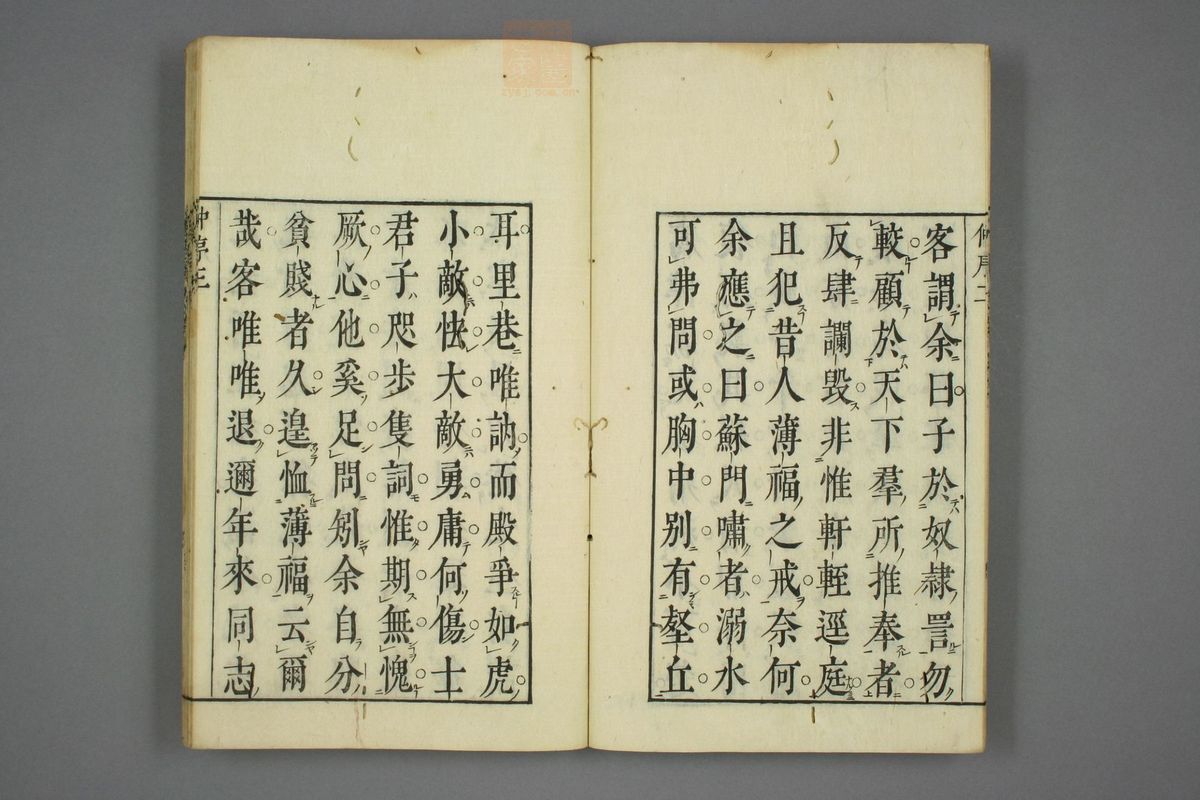 客謂余曰子於奴隷詈勿
較顧於天下羣所推奉者
反肆讕毀非惟軒輊逕庭
且犯昔人薄福之戒奈何
余應之曰蘇門嘯者溺水
可弗問或胸中別有壑丘
耳里巷唯訥而殿爭如虎
小敵怯大敵勇庸何傷士
君子咫步隻詞惟期無愧
厥心他奚足問矧余自分
貧賤者久遑恤薄福云爾
哉客唯唯退邇年來同志
zysj.com.cn